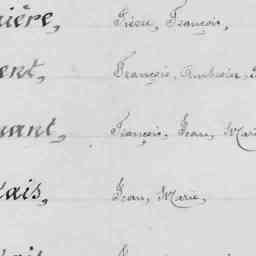 ière, Pierre, François,
ent, François, Ambroise,
nant, François, Jean, Marie
lais, Jean, Marie,